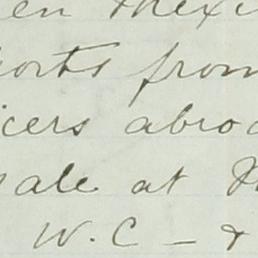 en Mexi
orts from
icers abroa
sale at
W. C - &